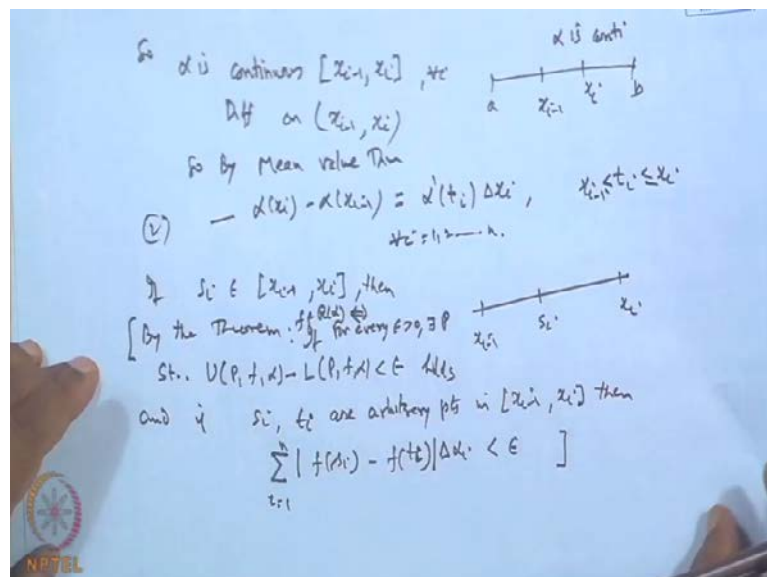 α is conti
So α is continuous [x_{i-1}, x_i], ∀i
a x_{i-1} x_i b
Diff on (x_{i-1}, x_i)
So By Mean value Thm
(v) — α(x_i) - α(x_{i-1}) = α'(t_i) Δx_i, x_{i-1} ≤ t_i ≤ x_i
∀i = 1, 2 ---- n.
If s_i ∈ [x_{i-1}, x_i], then
x_{i-1} s_i x_i
[By the Theorem: f ∈ R(α) ⇔ If for every ε>0, ∃ P
St.. U(P, f, α) - L(P, f, α) < ε holds
and if s_i, t_i are arbitrary pts in [x_{i-1}, x_i] then
∑_{i=1}^{n} | f(s_i) - f(t_i) | Δα_i < ε ]
NPTEL